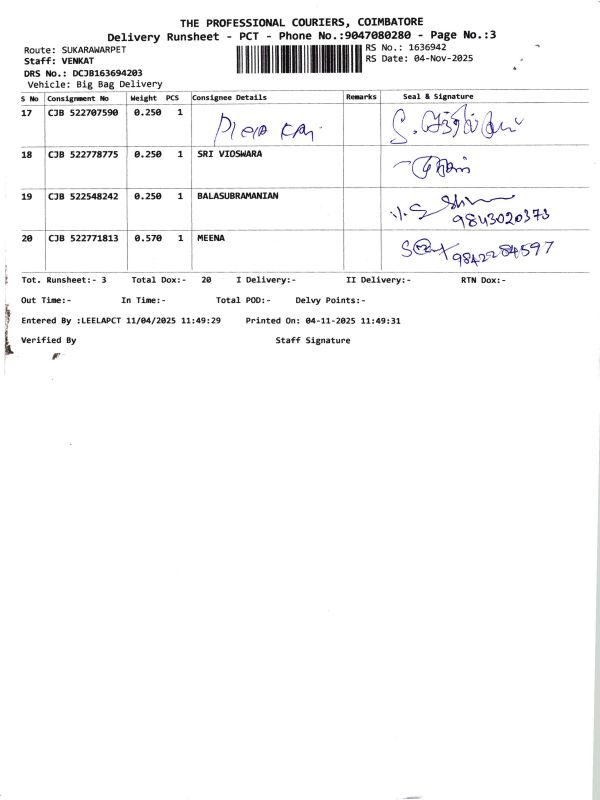 THE PROFESSIONAL COURIERS, COIMBATORE
Delivery Runsheet - PCT - Phone No.:9047080280 - Page No.:3
Route: SUKARAWARPET RS No.: 1636942
Staff: VENKAT RS Date: 04-Nov-2025
DRS No.: DCJB163694203
Vehicle: Big Bag Delivery
S No Consignment No Weight PCS Consignee Details Remarks Seal & Signature
17 CJB 522707590 0.250 1
18 CJB 522778775 0.250 1 SRI VIOSWARA
19 CJB 522548242 0.250 1 BALASUBRAMANIAN
9843020373
20 CJB 522771813 0.570 1 MEENA
9842284597
Tot. Runsheet:- 3 Total Dox:- 20 I Delivery:- II Delivery:- RTN Dox:-
Out Time:- In Time:- Total POD:- Delvy Points:-
Entered By :LEELAPCT 11/04/2025 11:49:29 Printed On: 04-11-2025 11:49:31
Verified By Staff Signature